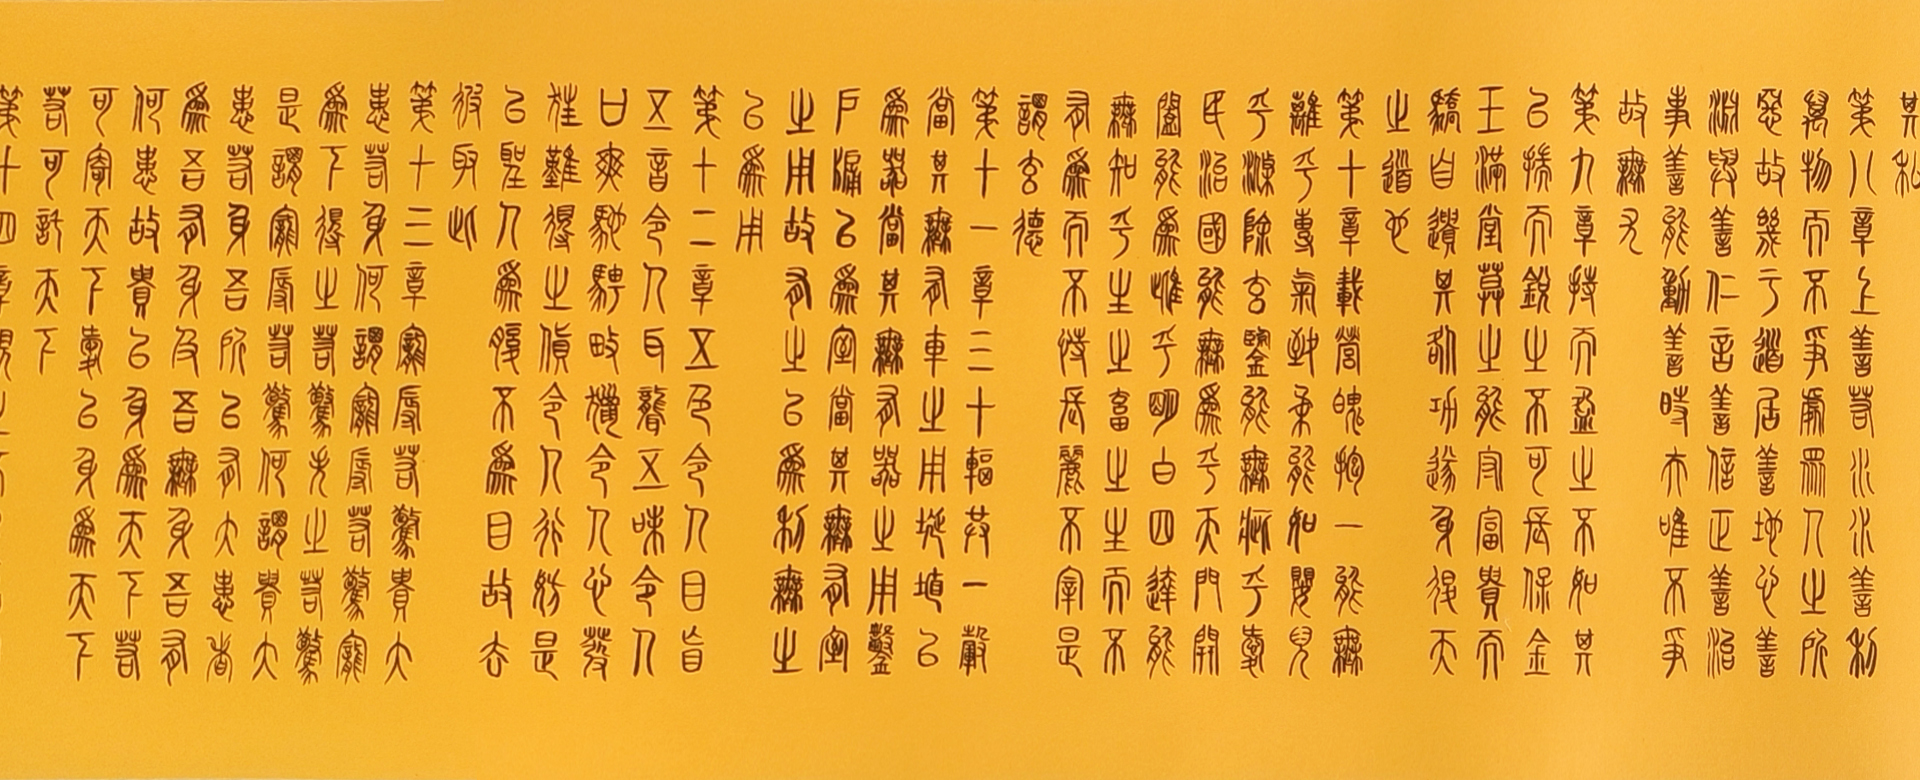 其私
第八章上善若水水善利
萬物而不爭處眾人之所
惡故幾于道居善地心善
淵與善仁言善信正善治
事善能動善時夫唯不爭
故無尤
第九章持而盈之不如其
已揣而銳之不可長保金
玉滿堂莫之能守富貴而
驕自遺其咎功遂身退天
之道也
第十章載營魄抱一能無
離乎專氣致柔能如嬰兒
乎滌除玄鑒能無疵乎愛
民治國能無為乎天門開
闔能為雌乎明白四達能
無知乎生之畜之生而不
有為而不恃長而不宰是
謂玄德
第十一章三十輻共一轂
當其無有車之用埏埴以
為器當其無有器之用鑿
戶牖以為室當其無有室
之用故有之以為利無之
以為用
第十二章五色令人目盲
五音令人耳聾五味令人
口爽馳騁畋獵令人心發
狂難得之貨令人行妨是
以聖人為腹不為目故去
彼取此
第十三章寵辱若驚貴大
患若身何謂寵辱若驚寵
為下得之若驚失之若驚
是謂寵辱若驚何謂貴大
患若身吾所以有大患者
為吾有身及吾無身吾有
何患故貴以身為天下若
可寄天下愛以身為天下
若可託天下
第十四章視之不